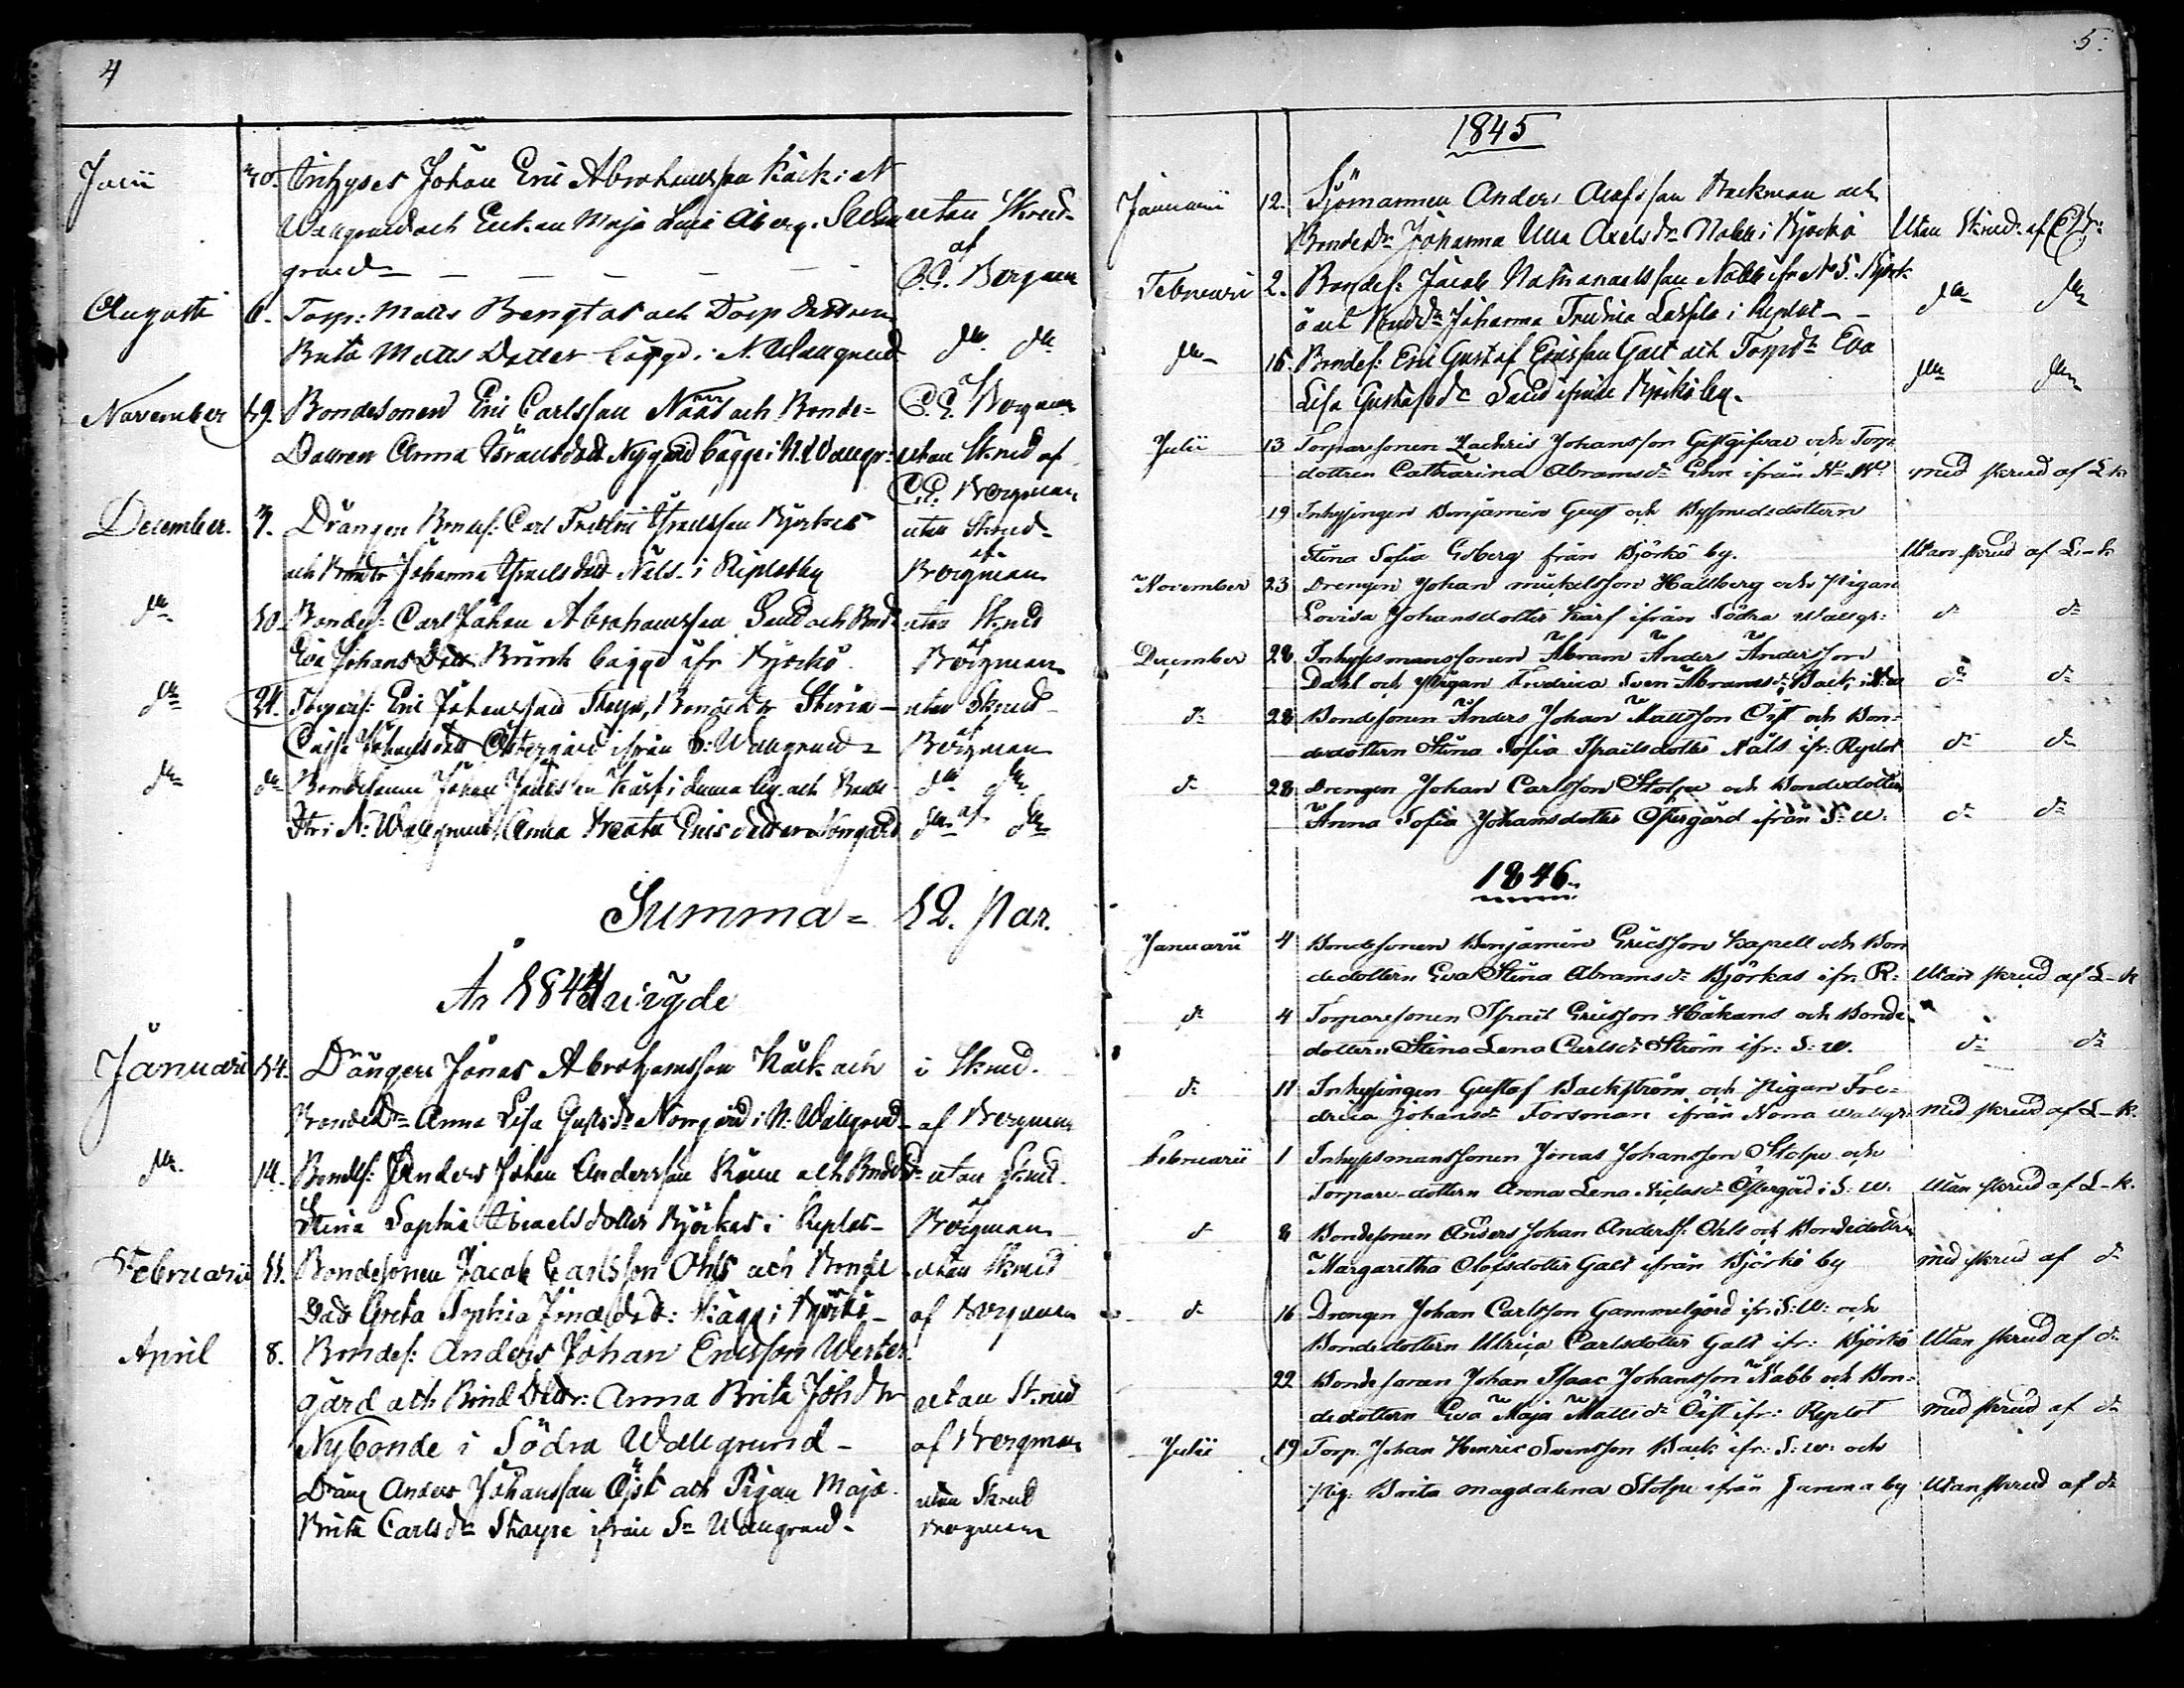 4
Junii 10. Inhyses Johan Eric Abrahamsson Käck i N
Wallgrund och Enkan Maja Åberg utan Skrud
grund af
C.E. Bergman
Augusti 6. Torp: Matts Bengtar och Torp Dottren
Brita Matts Dotter bägge i N. Wallgrund dn dn
November 19. Bondesonen Eric Carlsson Näås och Bonde- C.E. Bergman
Dottren Anna Israelsdott Nygård bägge i N. Wallgr: utan Skrud af
C.E. Bergman
December. 7. Drängen Bondes: Carl Fredric Israelsson Björkas utan Skrud
och Bonde Johanna Israels dott Näls i Replotby af Bergman
dn 10. Bondes: Carl Johan Abrahamsson och utan Skrud
Eva Johans Dott bägge ifr Björkö af Bergman
dn 21. Torpars: Eric Johansson Bonde dr Stina utan Skrud
Cajsa Johans dott Östergård ifrån S: Wallgrund af Bergman
dn dn Bondesonen Johan Karf i denna by och Bonde dn dn
Dtr i N: Wallgrund, Anna Beata Erics dotter Norrgård dn af dn
Summa = 12. Par.
År 1844 wigde
Januari 14. Drängen Jonas Abrahamsson Käck och i Skrud.
BondeDr Anna Lisa Gustsdr Norrgård i N: Wallgrund af Bergman
dn. 14. Bondes: Anders Johan Andersson och BondeDr utan Skrud.
Stina Sophia Israels dotter Björkas i Replot af Bergman
Februarii 11. Bondesonen Jacob Carlsson Ohls och Bonde utan Skrud
Dott Greta Sophia dott: Skägg i Björkö af Bergman
April 8. Bondes: Anders Johan Ericsson Wester
gård och Bond Dottr: Anna Brita Joh dr utan Skrud
Nybonde i Södra Wallgrund af Bergman
Dräng Anders Johansson Öjst och Pigan Maja utan Skrud
Brita Carls dr ifrån Sr Wallgrund Bergman
5.
1845
Januarii 12. Sjömannen Anders Backman och
Bondedr Johanna Ulla Axels dr Nabb i Björkö Utan Skrud af
Februari 2. Bondes: Jacob Nathanaelsson Nabb ifr No 5. Björk
ö och Johanna Fredrica i Replot dn dn
dn 16. Bondes: Eric Gustaf Ericsson Galt och Torpdr Eva
Lisa Gustafsdr ifrån Björkö by. dn dn
Julii 13 Torparesonen Zachris Johansson Gästgifvar och Torp
dottren Catharina Abramsdr ifrån No W. med skrud af L-k
19 Inhysingen Benjamin Gust och Bysmedsdottern
Stina Sofia Enberg från Björkö by. Utan skrud af L-k
November 23 Drengen Johan Mickelsson Hallberg och Pigan
Lovisa Johansdotter Karf ifrån Södra Wallgr: d: d:
December 28 Inhysesmanssonen Abram Anders Andersson
Dahl och Pigan Fredrica Sven Abramsdr Back d: d:
d: 28 Bondesonen Anders Johan Mattsson Öist och Bon-
dedottern Stina Sofia Israelsdotter Näls ifr: Replot d: d:
d: 28 Drengen Johan Carlsson Stolpe och Bondedotter
Anna Sofia Johansdotter Östergård ifrån S: W. d: d:
1846.
Januarii 4 Bondesonen Benjamin Ericsson Kapell och Bon
dedottern Eva Stina Abramsdr Björkas ifr. R: Utan skrud af L-k
d: 4 Torparesonen Israel Ericsson Håkans och Bonde-
dottern Stina Lena Carlsdr Ström ifr: S: W. d: d:
d: 11 Inhysingen Gustof Backström och Pigan Fre-
drica Johansdr Forsman ifrån Norra Wallgr: med skrud af L-k.
Februarii 1 Inhysesmanssonen Jonas Johansson Stolpe och
Torpare-dottern Anna Lena Niclasdr Östergård i S: W. Utan skrud af L-k.
d: 8 Bondesonen Anders Johan Anderss: Ohls och Bondedottern
Margaretha Olofsdotter Galt ifrån Björkö by med skrud af d:
d: 16 Drengen Johan Carlsson Gammelgård ifr: S: W: och
Bondedottern Ulrica Carlsdotter Galt ifr: Björkö Utan skrud af d:
22 Bondesonen Johan Isaac Johansson Nabb och Bon-
dedottern Eva Maja Mattsdr Öist ifr: Replot med skrud af d:
Julii 19 Torp. Johan Henric Svensson Back ifr: S: W: och
Pig. Brita Magdalena Stolpe ifrån samma by Utan skrud af d: